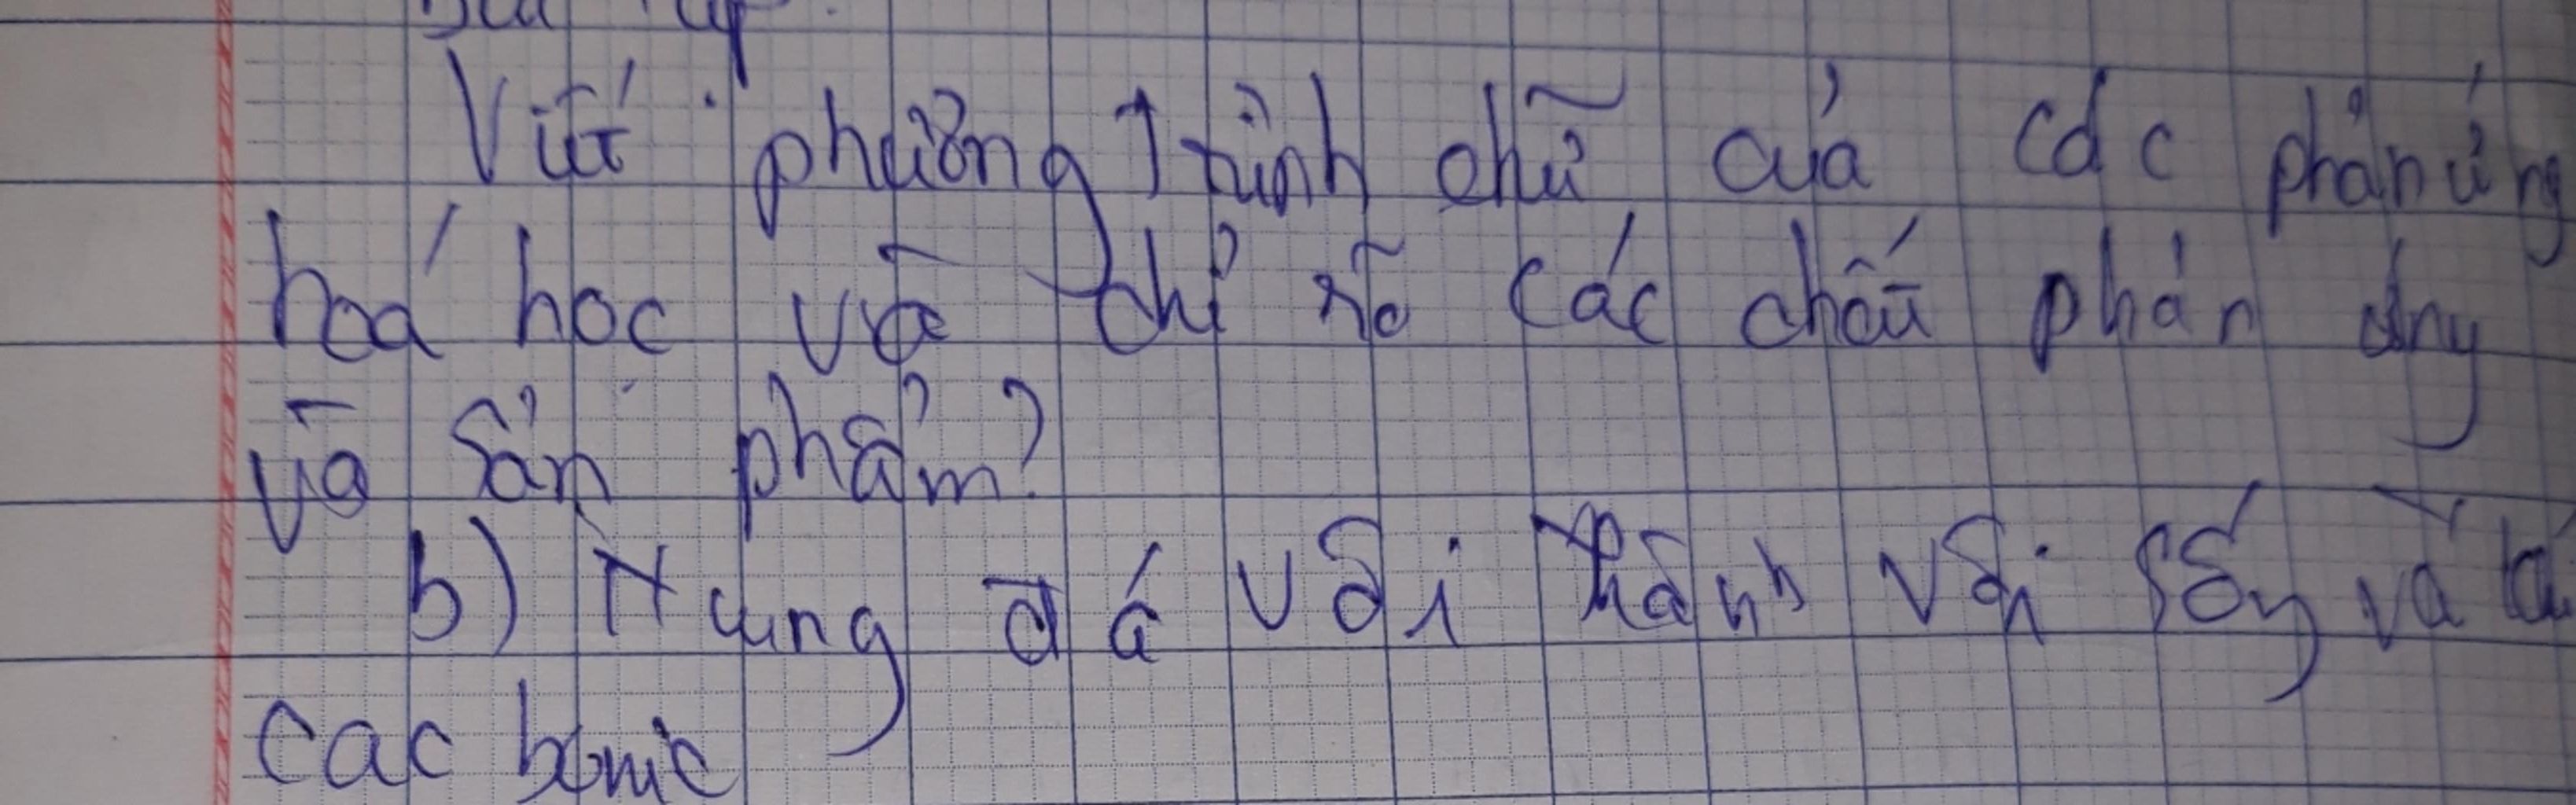 Viết phương trình chữ của các phản ứng
hoá học và chỉ rõ các chất phản ứng
và sản phẩm?
b) Nung đá vôi thành vôi sống và
cac bonic